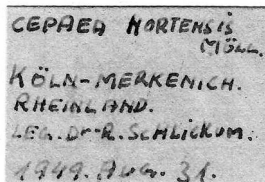 CEPAEA HORTENSIS
MÜLL.
KÖLN-MERKENICH.
RHEINLAND.
LEG. Dr. R. SCHLICKUM.
1949. AUG. 31.